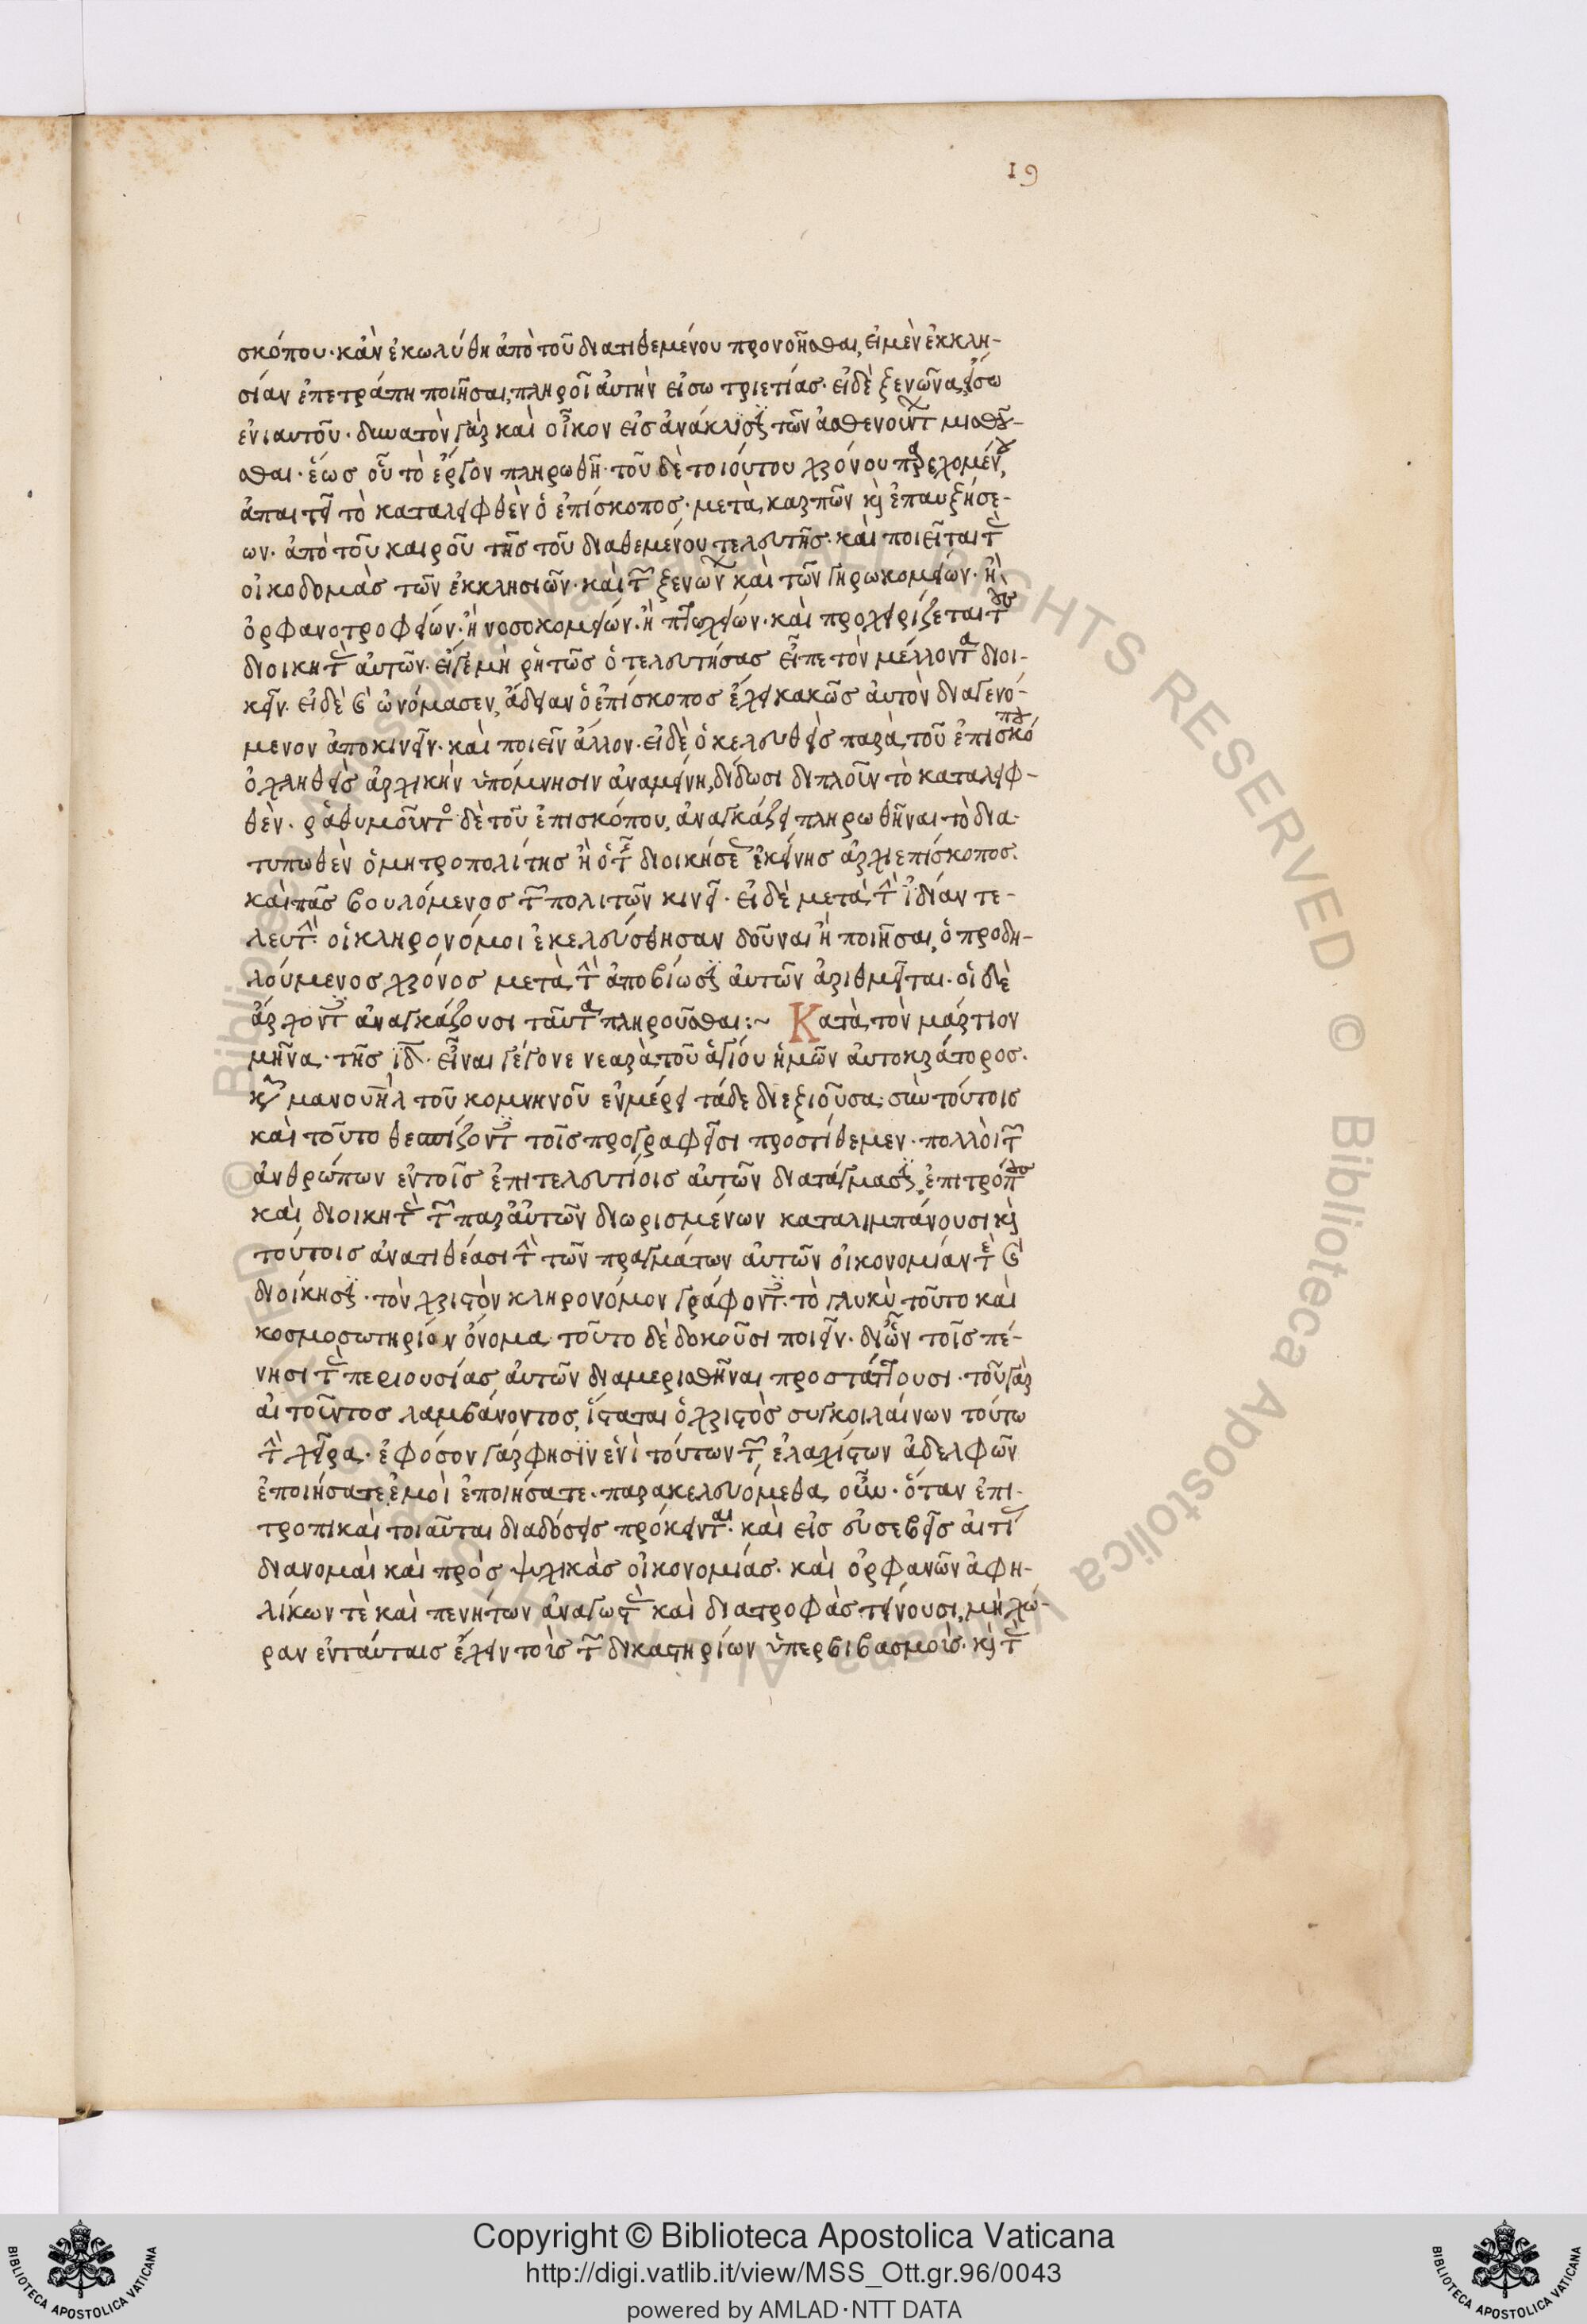 19
σκόπου· κἂν ἐκωλύθη ἀπὸ τοῦ διατιθεμένου προνοῆσθαι, εἰ μὲν ἐκκλη-
σίαν ἐπετράπη ποιῆσαι, πληροῖ αὐτὴν εἴσω τριετίας· εἰ δὲ ξενῶνα, εἴσω
ἐνιαυτοῦ· δυνατὸν γὰρ καὶ οἶκον εἰς ἀνάκλισιν τῶν ἀσθενούντων μισθοῦ-
σθαι· ἕως οὗ τὸ ἔργον πληρωθῆ· τοῦ δὲ τοιούτου χρόνου παρερχομένου,
ἀπαιτεῖ τὸ καταλειφθὲν ὁ ἐπίσκοπος· μετὰ καρπῶν καὶ ἐπαυξήσε-
ων· ἀπὸ τοῦ καιροῦ τῆς τοῦ διαθεμένου τελευτῆς· καὶ ποιεῖται τὰς
οἰκοδομὰς τῶν ἐκκλησιῶν· καὶ τῶν ξενώνων καὶ τῶν γηρωκομείων· ἢ
ὀρφανοτροφείων· ἢ νοσοκομείων· ἢ πτωχείων· καὶ προχειρίζεται τοὺς
διοικητὰς αὐτῶν· εἴγε μὴ ῥητῶς ὁ τελευτήσας εἶπε τὸν μέλλοντα διοι-
κεῖν· εἰ δὲ καὶ ὠνόμασεν, ἄδειαν ὁ ἐπίσκοπος ἔχει κακῶς αὐτὸν διαγενό-
μενον ἀποκινεῖν· καὶ ποιεῖν ἄλλον· εἰ δὲ ὁ κελευθεὶς παρὰ τοῦ ἐπισκόπου
ὀχληθεὶς ἀρχικὴν ὑπόμνησιν ἀναμείνη, δίδωσι διπλοῦν τὸ καταλειφ-
θὲν· ῥαθυμοῦντος δὲ τοῦ ἐπισκόπου, ἀναγκάζει πληρωθῆναι τὸ δια-
τυπωθὲν ὁ μητροπολίτης ἢ ὁ τῆς διοικήσεως ἐκείνης ἀρχιεπίσκοπος.
καὶ πᾶς βουλόμενος τῶν πολιτῶν κινεῖ· εἰ δὲ μετὰ τὴν ἰδίαν τε-
λευτὴν οἱ κληρονόμοι ἐκελεύσθησαν δοῦναι ἢ ποιῆσαι, ὁ προδη-
λούμενος χρόνος μετὰ τὴν ἀποβίωσιν αὐτῶν ἀριθμεῖται· οἱ δὲ
ἄρχοντες ἀναγκάζουσι ταῦτα πληροῦσθαι:~ Κατὰ τὸν μάρτιον
μῆνα· τῆς ιδ· εἶναι γέγονε νεαρὰ τοῦ ἁγίου ἡμῶν αὐτοκράτορος.
κυροῦ μανουὴλ τοῦ κομνηνοῦ ἐν μέρει τάδε διεξιοῦσα· σὺν τούτοις
καὶ τοῦτο θεσπίζοντες τοῖς προγραφεῖσι προστίθεμεν· πολλοὶ τῶν
ἀνθρώπων ἐν τοῖς ἐπιτελευτίοις αὐτῶν διατάγμασιν, ἐπιτρόπους
καὶ διοικητὰς τῶν παρ᾽ αὐτῶν διωρισμένων καταλιμπάνουσι καὶ
τούτοις ἀνατιθέασι τὴν τῶν πραγμάτων αὐτῶν οἰκονομίαν τὲ καὶ
διοίκησιν· τὸν χριστὸν κληρονόμον γράφοντες· τὸ γλυκὺ τοῦτο καὶ
κοσμοσωτήριον ὄνομα· τοῦτο δὲ δοκοῦσι ποιεῖν· δι᾽ ὧν τοῖς πέ-
νησι τὰς περιουσίας αὐτῶν διαμερισθῆναι προστάττουσι· τοῦ γὰρ
αἰτοῦντος λαμβάνοντος, ἵσταται ὁ χριστὸς συγκοιλαίνων τούτω
τὴν χεῖρα· ἐφόσον γὰρ φησὶν ἑνὶ τούτων τῶν ἐλαχίστων ἀδελφῶν
ἐποιήσατε, ἐμοὶ ἐποιήσατε· παρακελευόμεθα οὖν· ὅταν ἐπι-
τροπικαὶ τοιαῦται διαδόσεις πρόκεινται· καὶ εἰς εὐσεβεῖς αἰτίας
διανομαὶ καὶ πρὸς ψυχικὰς οἰκονομίας· καὶ ὀρφανῶν ἀφη-
λίκων τὲ καὶ πενήτων ἀναγωγὰς καὶ διατροφὰς τείνουσι, μὴ χώ-
ραν ἐν ταύταις ἔχειν τοῖς τῶν δικαστηρίων ὑπερβιβασμοῖς· καὶ τὰς
© Biblioteca Apostolica Vaticana ALL RIGHTS RESERVED
Copyright © Biblioteca Apostolica Vaticana
http://digi.vatlib.it/view/MSS_Ott.gr.96/0043
powered by AMLAD·NTT DATA
BIBLIOTECA APOSTOLICA VATICANA
BIBLIOTECA APOSTOLICA VATICANA